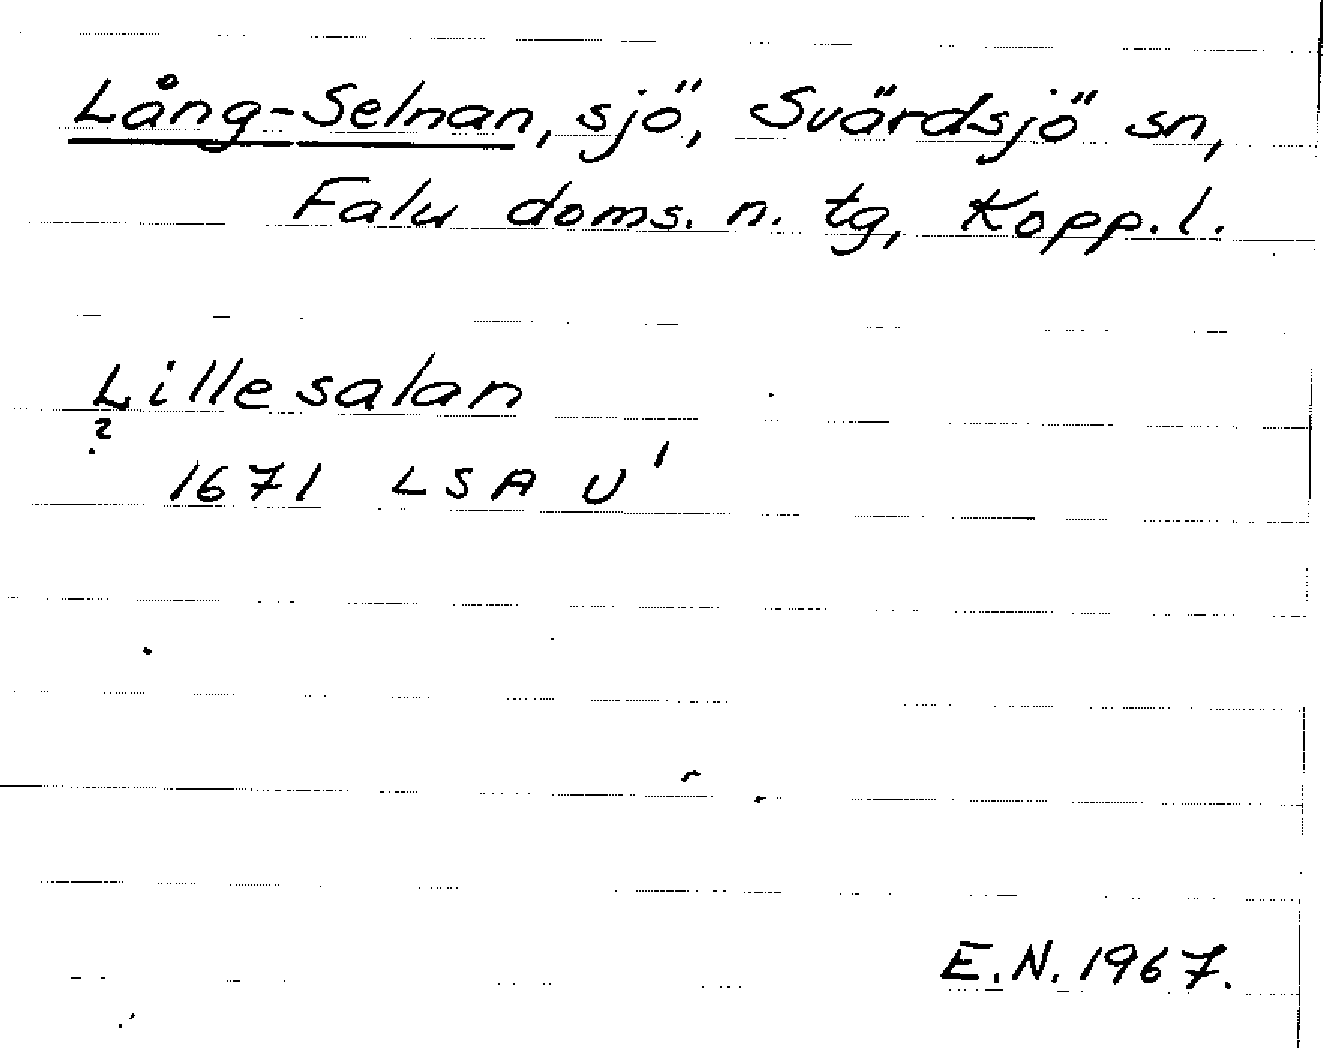 Lång-Selnan, sjö, Svärdsjö sn,
Falu doms. n. tg, Kopp. l.
Lillesalan
?
1671 LSA U'
E.N. 1967.